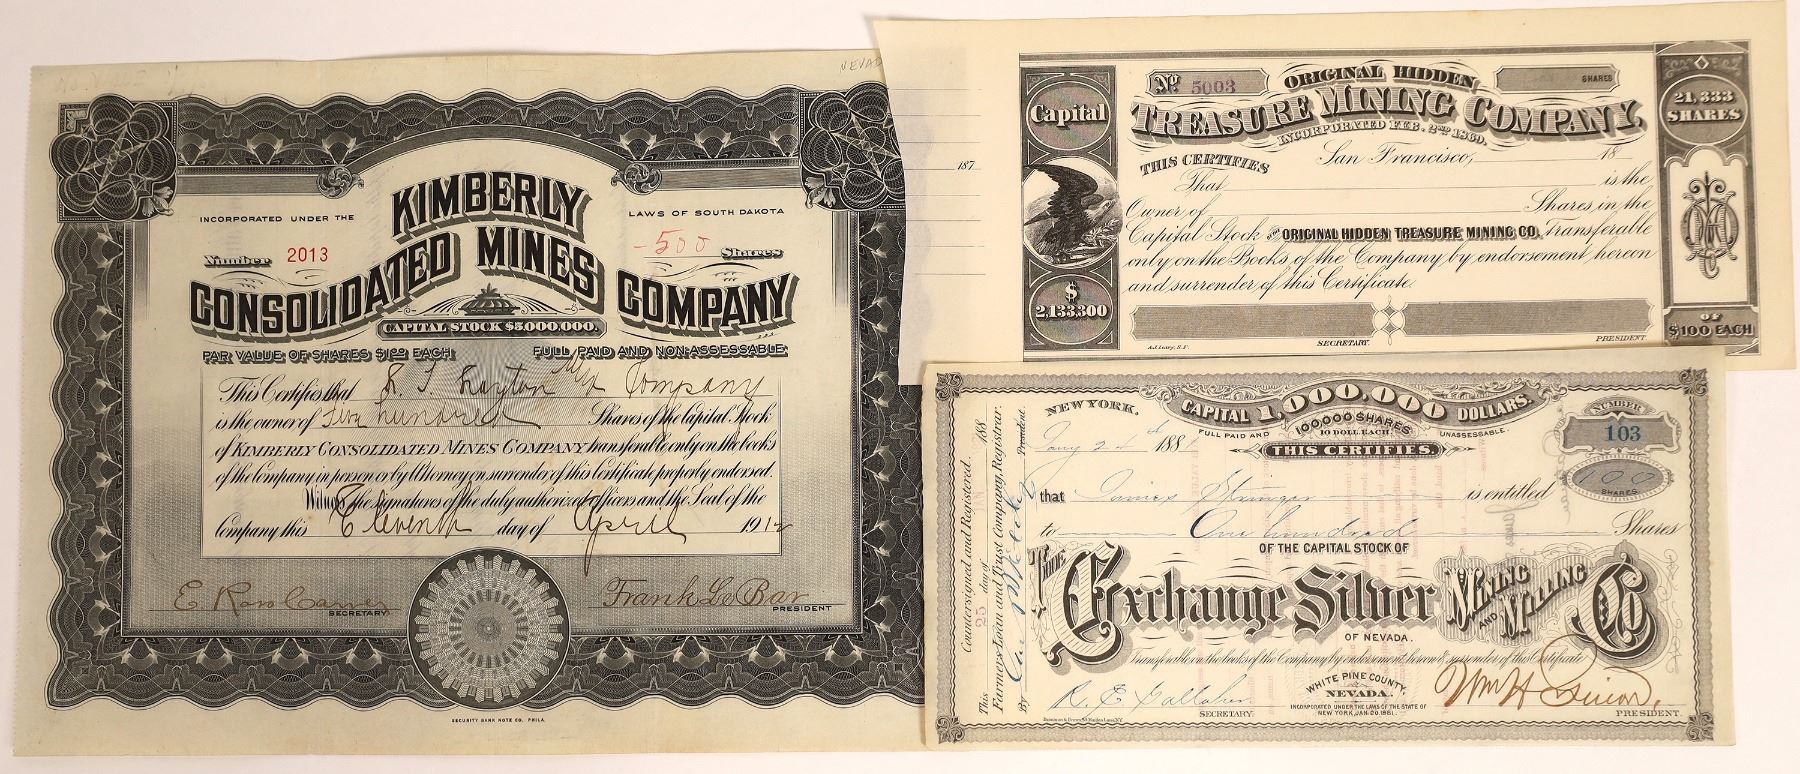 NEVAD
INCORPORATED UNDER THE
LAWS OF SOUTH DAKOTA
Number 2013
500 Shares
KIMBERLY
CONSOLIDATED MINES COMPANY
CAPITAL STOCK $5,000,000.
PAR VALUE OF SHARES $1.00 EACH
FULL PAID AND NON-ASSESSABLE
This Certifies that Company
is the owner of hundred Shares of the Capital Stock
of KIMBERLY CONSOLIDATED MINES COMPANY transferable only on the books
of the Company in person or by Attorney on surrender of this Certificate properly endorsed.
Witness the signatures of the duly authorized officers and the Seal of the
Company this Eleventh day of April 1912
SECRETARY
Frank Le Bar
PRESIDENT
SECURITY BANK NOTE CO. PHILA.
187
Capital
$
2,133,300
No. 5003
ORIGINAL HIDDEN
SHARES
TREASURE MINING COMPANY.
INCORPORATED FEB. 2ND 1869.
THIS CERTIFIES
San Francisco, 18
That is the
Owner of Shares in the
Capital Stock of the ORIGINAL HIDDEN TREASURE MINING CO. Transferable
only on the Books of the Company by endorsement hereon
and surrender of this Certificate.
SECRETARY.
PRESIDENT.
21,333
SHARES
OF
$100 EACH
Countersigned and Registered.
This 25 day of 188
Farmers Loan and Trust Company, Registrar.
By President.
NEW YORK.
CAPITAL 1,000,000 DOLLARS.
FULL PAID AND 100,000 SHARES UNASSESSABLE.
10 DOLL. EACH.
NUMBER
103
188
THIS CERTIFIES.
100
SHARES
that James Springer is entitled
to One hundred Shares
OF THE CAPITAL STOCK OF
THE Exchange Silver MINING AND MILLING Co
OF NEVADA.
Transferable on the books of the Company by endorsement hereon & surrender of this Certificate
WHITE PINE COUNTY,
NEVADA.
INCORPORATED UNDER THE LAWS OF THE STATE OF
NEW YORK, JAN. 20, 1881.
SECRETARY.
PRESIDENT.